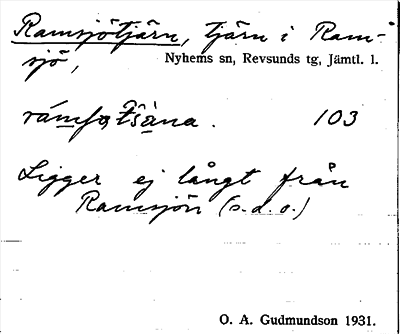 Ramsjötjärn, tjärn i Ram-
sjö, Nyhems sn, Revsunds tg, Jämtl. l.
103
Ligger ej långt från
Ramsjön (s.d.o.)
O. A. Gudmundson 1931.